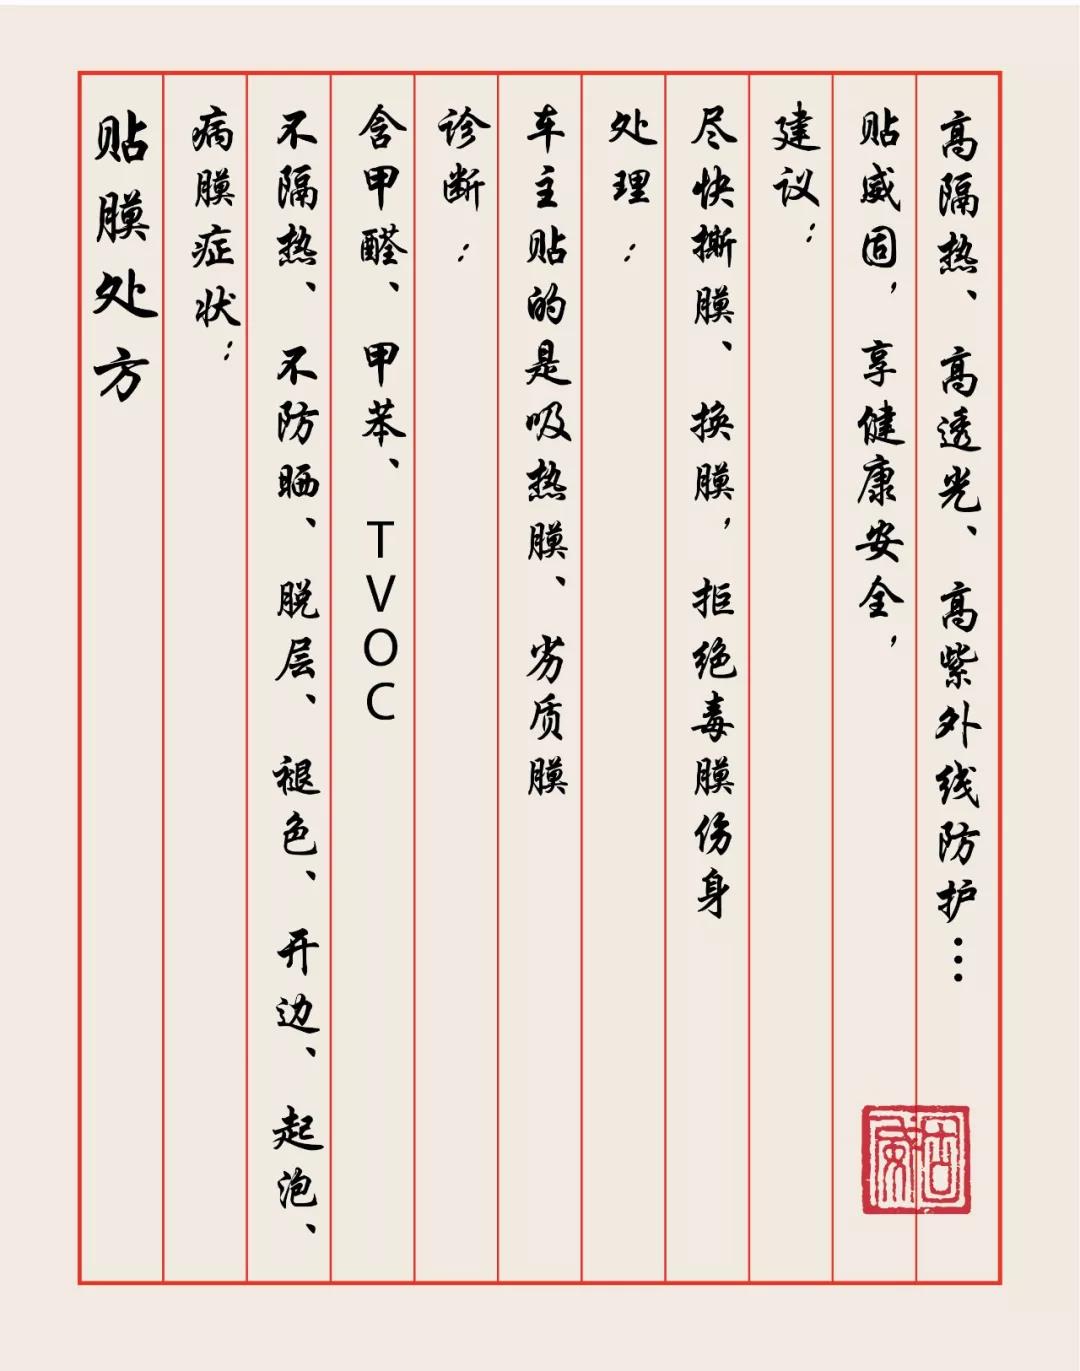 贴膜处方
病膜症状：
不隔热、不防晒、脱层、褪色、开边、起泡、
含甲醛、甲苯、TVOC
诊断：
车主贴的是吸热膜、劣质膜
处理：
尽快撕膜、换膜，拒绝毒膜伤身
建议：
贴威固，享健康安全，
高隔热、高透光、高紫外线防护…
威固